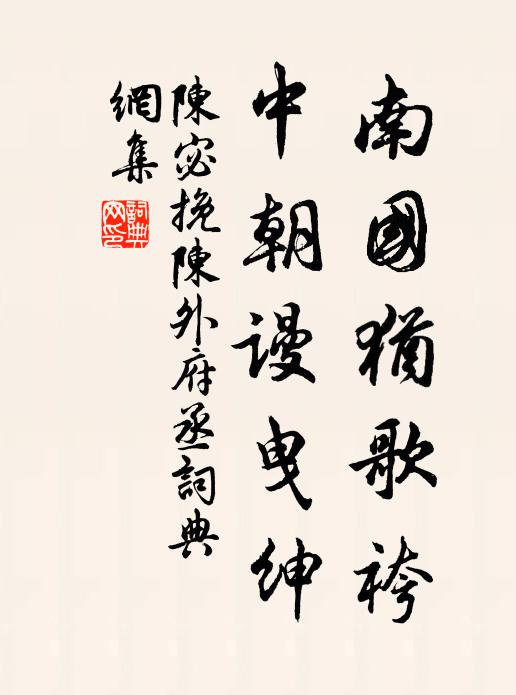 南國猶歌袴
中朝謾曳紳
陳宓挽陳外府丞詞典
網集
詞典
网印